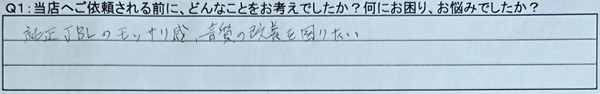 Q1：当店へご依頼される前に、どんなことをお考えでしたか？何にお困り、お悩みでしたか？
純正JBLのモッサリ感、音質の改善を図りたい